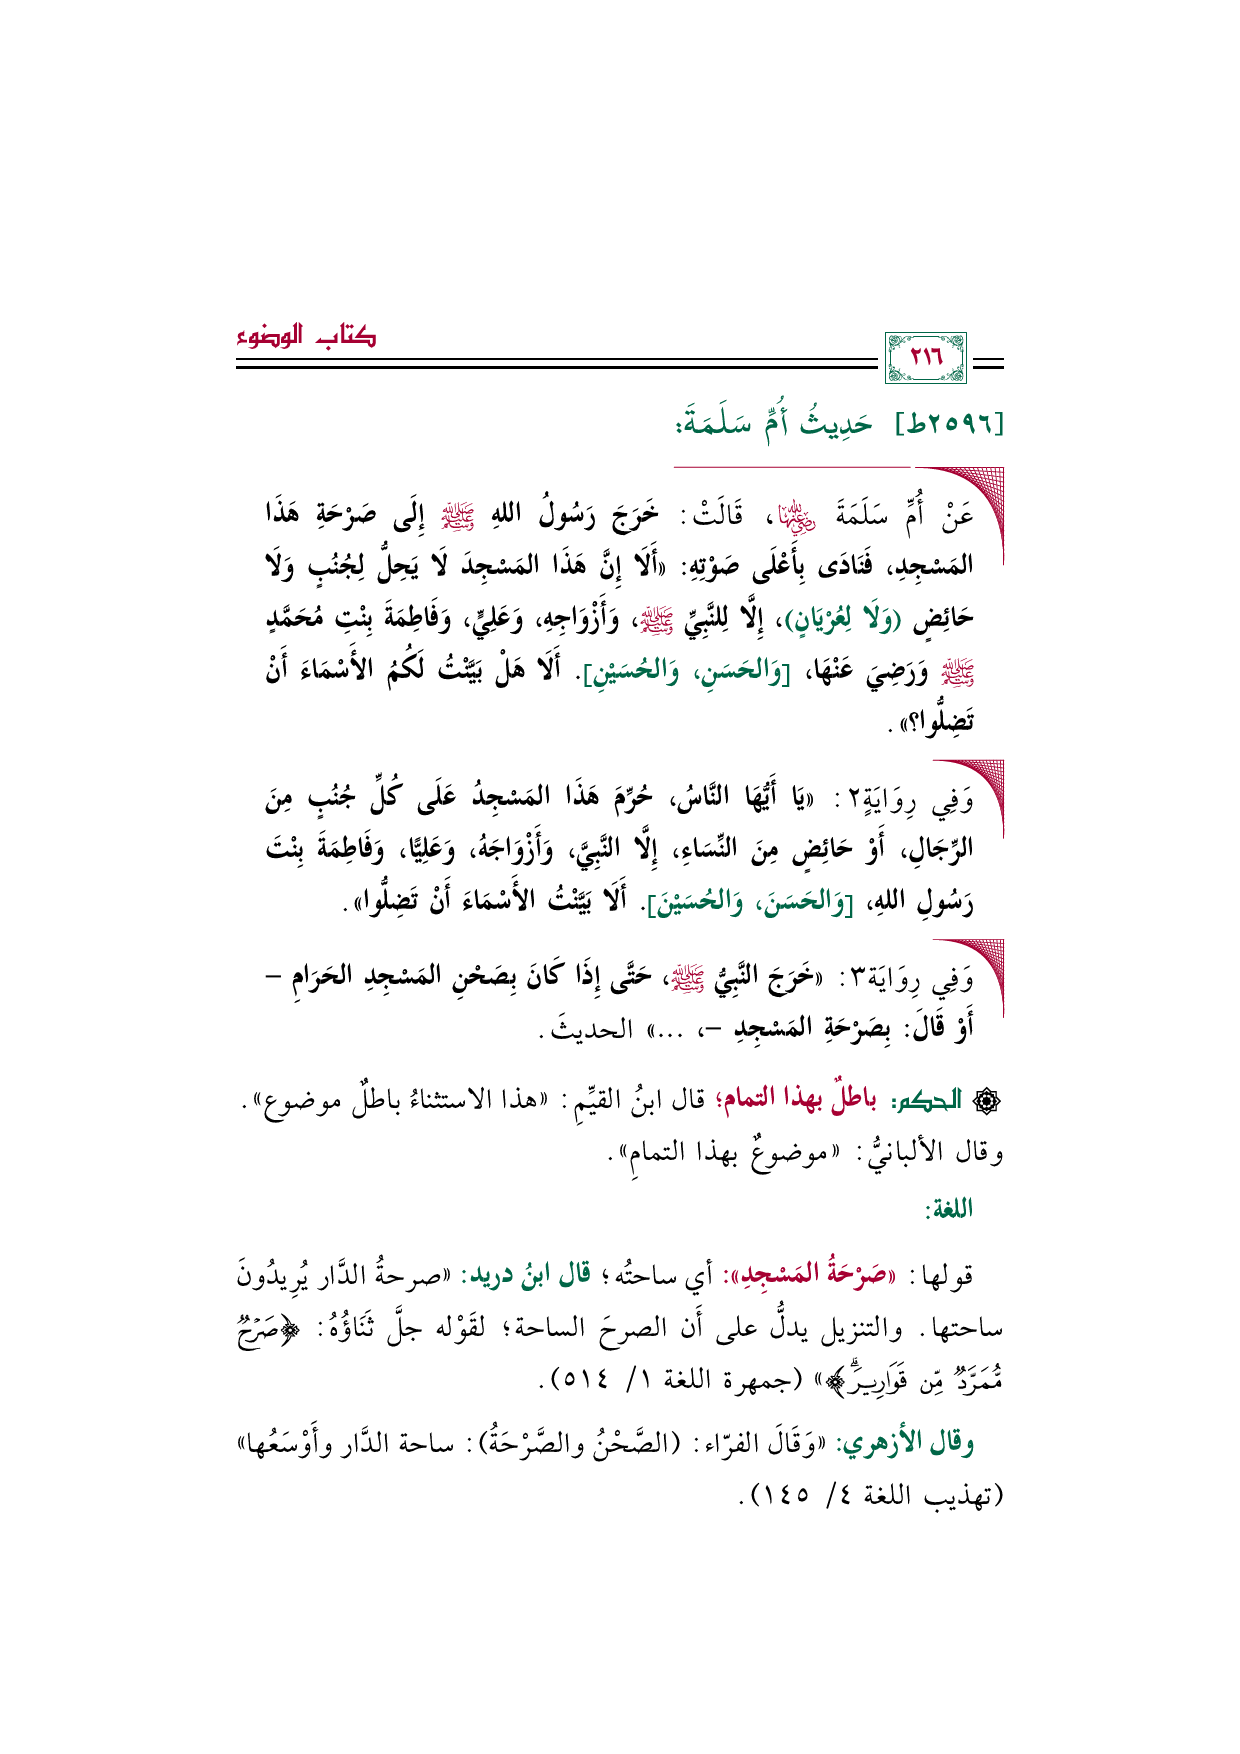 كتاب الوضوء
٢١٦
[٢٥٩٦ط] حَدِيثُ أُمِّ سَلَمَةَ:
عَنْ أُمِّ سَلَمَةَ رضي الله عنها، قَالَتْ: خَرَجَ رَسُولُ اللهِ ﷺ إِلَى صَرْحَةِ هَذَا
المَسْجِدِ، فَنَادَى بِأَعْلَى صَوْتِهِ: «أَلَا إِنَّ هَذَا المَسْجِدَ لَا يَحِلُّ لِجُنُبٍ وَلَا
حَائِضٍ (وَلَا لِعُرْيَانٍ)، إِلَّا لِلنَّبِيِّ ﷺ، وَأَزْوَاجِهِ، وَعَلِيٍّ، وَفَاطِمَةَ بِنْتِ مُحَمَّدٍ
ﷺ وَرَضِيَ عَنْهَا، [وَالحَسَنِ، وَالحُسَيْنِ]. أَلَا هَلْ بَيَّنْتُ لَكُمُ الأَسْمَاءَ أَنْ
تَضِلُّوا؟».
وَفِي رِوَايَةٍ٢: «يَا أَيُّهَا النَّاسُ، حُرِّمَ هَذَا المَسْجِدُ عَلَى كُلِّ جُنُبٍ مِنَ
الرِّجَالِ، أَوْ حَائِضٍ مِنَ النِّسَاءِ، إِلَّا النَّبِيَّ، وَأَزْوَاجَهُ، وَعَلِيًّا، وَفَاطِمَةَ بِنْتَ
رَسُولِ اللهِ، [وَالحَسَنَ، وَالحُسَيْنَ]. أَلَا بَيَّنْتُ الأَسْمَاءَ أَنْ تَضِلُّوا».
وَفِي رِوَايَة٣: «خَرَجَ النَّبِيُّ ﷺ، حَتَّى إِذَا كَانَ بِصَحْنِ المَسْجِدِ الحَرَامِ –
أَوْ قَالَ: بِصَرْحَةِ المَسْجِدِ –، ...» الحديثَ.
الحكم: باطلٌ بهذا التمام؛ قال ابنُ القيِّمِ: «هذا الاستثناءُ باطلٌ موضوع».
وقال الألبانيُّ: «موضوعٌ بهذا التمامِ».
اللغة:
قولها: «صَرْحَةُ المَسْجِدِ»: أي ساحتُه؛ قال ابنُ دريد: «صرحةُ الدَّار يُرِيدُونَ
ساحتها. والتنزيل يدلُّ على أَن الصرحَ الساحة؛ لقَوْله جلَّ ثَنَاؤُهُ: ﴿صَرْحٌ
مُّمَرَّدٌ مِّن قَوَارِيرَۗ﴾» (جمهرة اللغة ١/ ٥١٤).
وقال الأزهري: «وَقَالَ الفرّاء: (الصَّحْنُ والصَّرْحَةُ): ساحة الدَّار وأَوْسَعُها»
(تهذيب اللغة ٤/ ١٤٥).